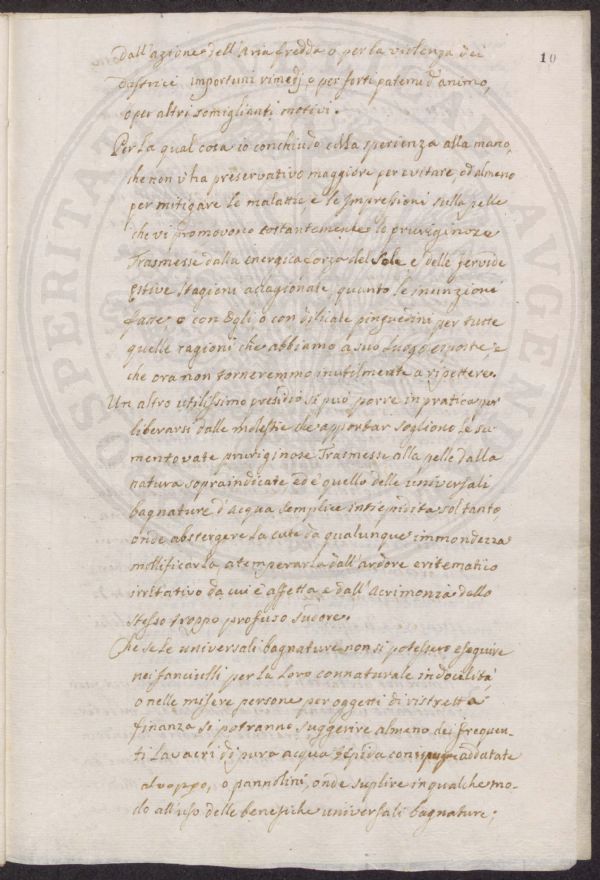 10
dall'azione dell'Aria fredda o per la violenza dei
importuni rimedj, o per forti patemi d'animo,
o per altri somiglianti motivi.
Per La qual cosa io conchiudo colla sperienza alla mano,
che non v'ha preservativo maggiore per evitare, od almeno
per mitigare le malattie e le Impressioni sulla pelle
che vi promovono costantemente le pruriginose
Trasmesse dalla energica forza del Sole e delle fervide
Estive Stagioni cagionate, quanto le inunzioni
fatte o con Egli o con dilicate pinguedini per tutte
quelle ragioni che abbiamo a suo Luogo esposte, e
che ora non torneremmo inutilmente a ripettere.
Un altro utilissimo presidio si può porre in pratica per
liberarsi dalle molestie che apportar sogliono le su
mentovate pruriginose Trasmesse alla pelle dalla
natura sopraindicate ed è quello delle universali
bagnature d'Acqua semplice intiepidita soltanto,
onde abstergere La cute da qualunque immondezza
mollificarla, attemperarla dall'ardore eritematico
irritativo da cui è affetta e dall'Acrimonia dello
stesso troppo profuso sudore.
Che se le universali bagnature non si potessero eseguire
nei fanciulli per La Loro connaturale indocilità,
o nelle misere persone per oggetti di ristretta
finanza si potranno suggerire almeno dei frequen-
ti Lavacri di pura acqua tepida con addatate
al uoppo, o pannolini, onde suplire in qualche mo-
do all'uso delle benefiche universali bagnature;
OSPERITATI AUGENDAE